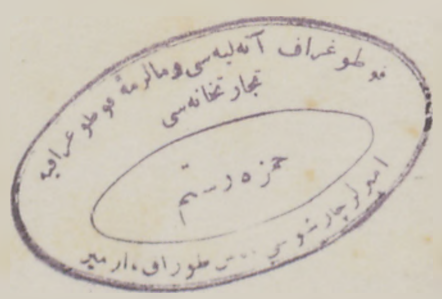 فوطوغراف آتەليەسى ومالزمۀ فوطوغرافيه
تجارتخانەسى
حمزه رستم
اميرلر چارشوسى طوراق، ازمير